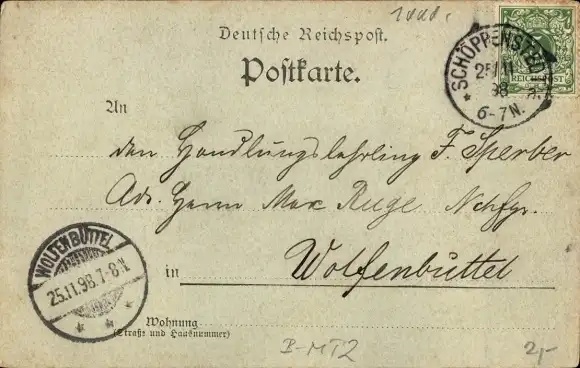 1000.
Deutsche Reichspost.
Postkarte.
SCHÖPPENSTEDT
25/11
98
6-7N.
REICHSPOST
An
den Handlungslehrling F. Sperber
Adr. Herrn Max Ruge Nchfgr.
in Wolfenbüttel
WOLFENBÜTTEL
25.11.98.7-8.N
Wohnung
(Straße und Hausnummer)
B-MT2
2,-